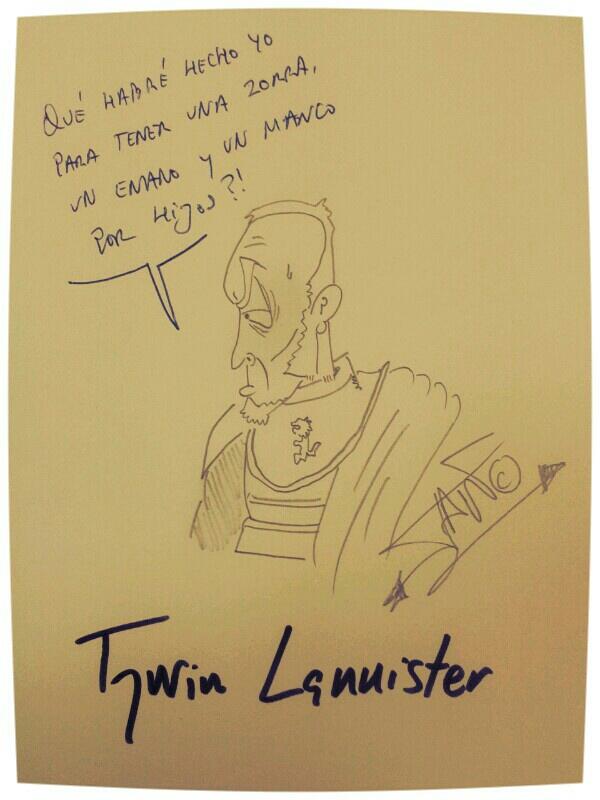 QUÉ HABRÉ HECHO YO
PARA TENER UNA ZORRA,
UN ENANO Y UN MANCO
POR HIJOS?!
©
Tywin Lannister